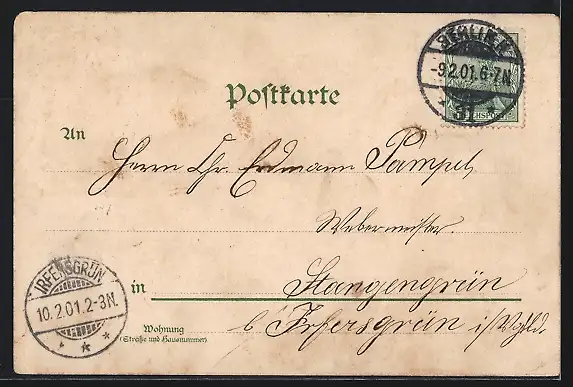 Postkarte
BERLIN.N.
-9.2.01.6-7N.
31
REICHSPOST
An
Herrn Chr. Erdmann Pampel,
Webermeister.
in Stangengrün
b/ Irfersgrün i/Vogtld.
IRFERSGRÜN
10.2.01.2-3N.
Wohnung
(Straße und Hausnummer)